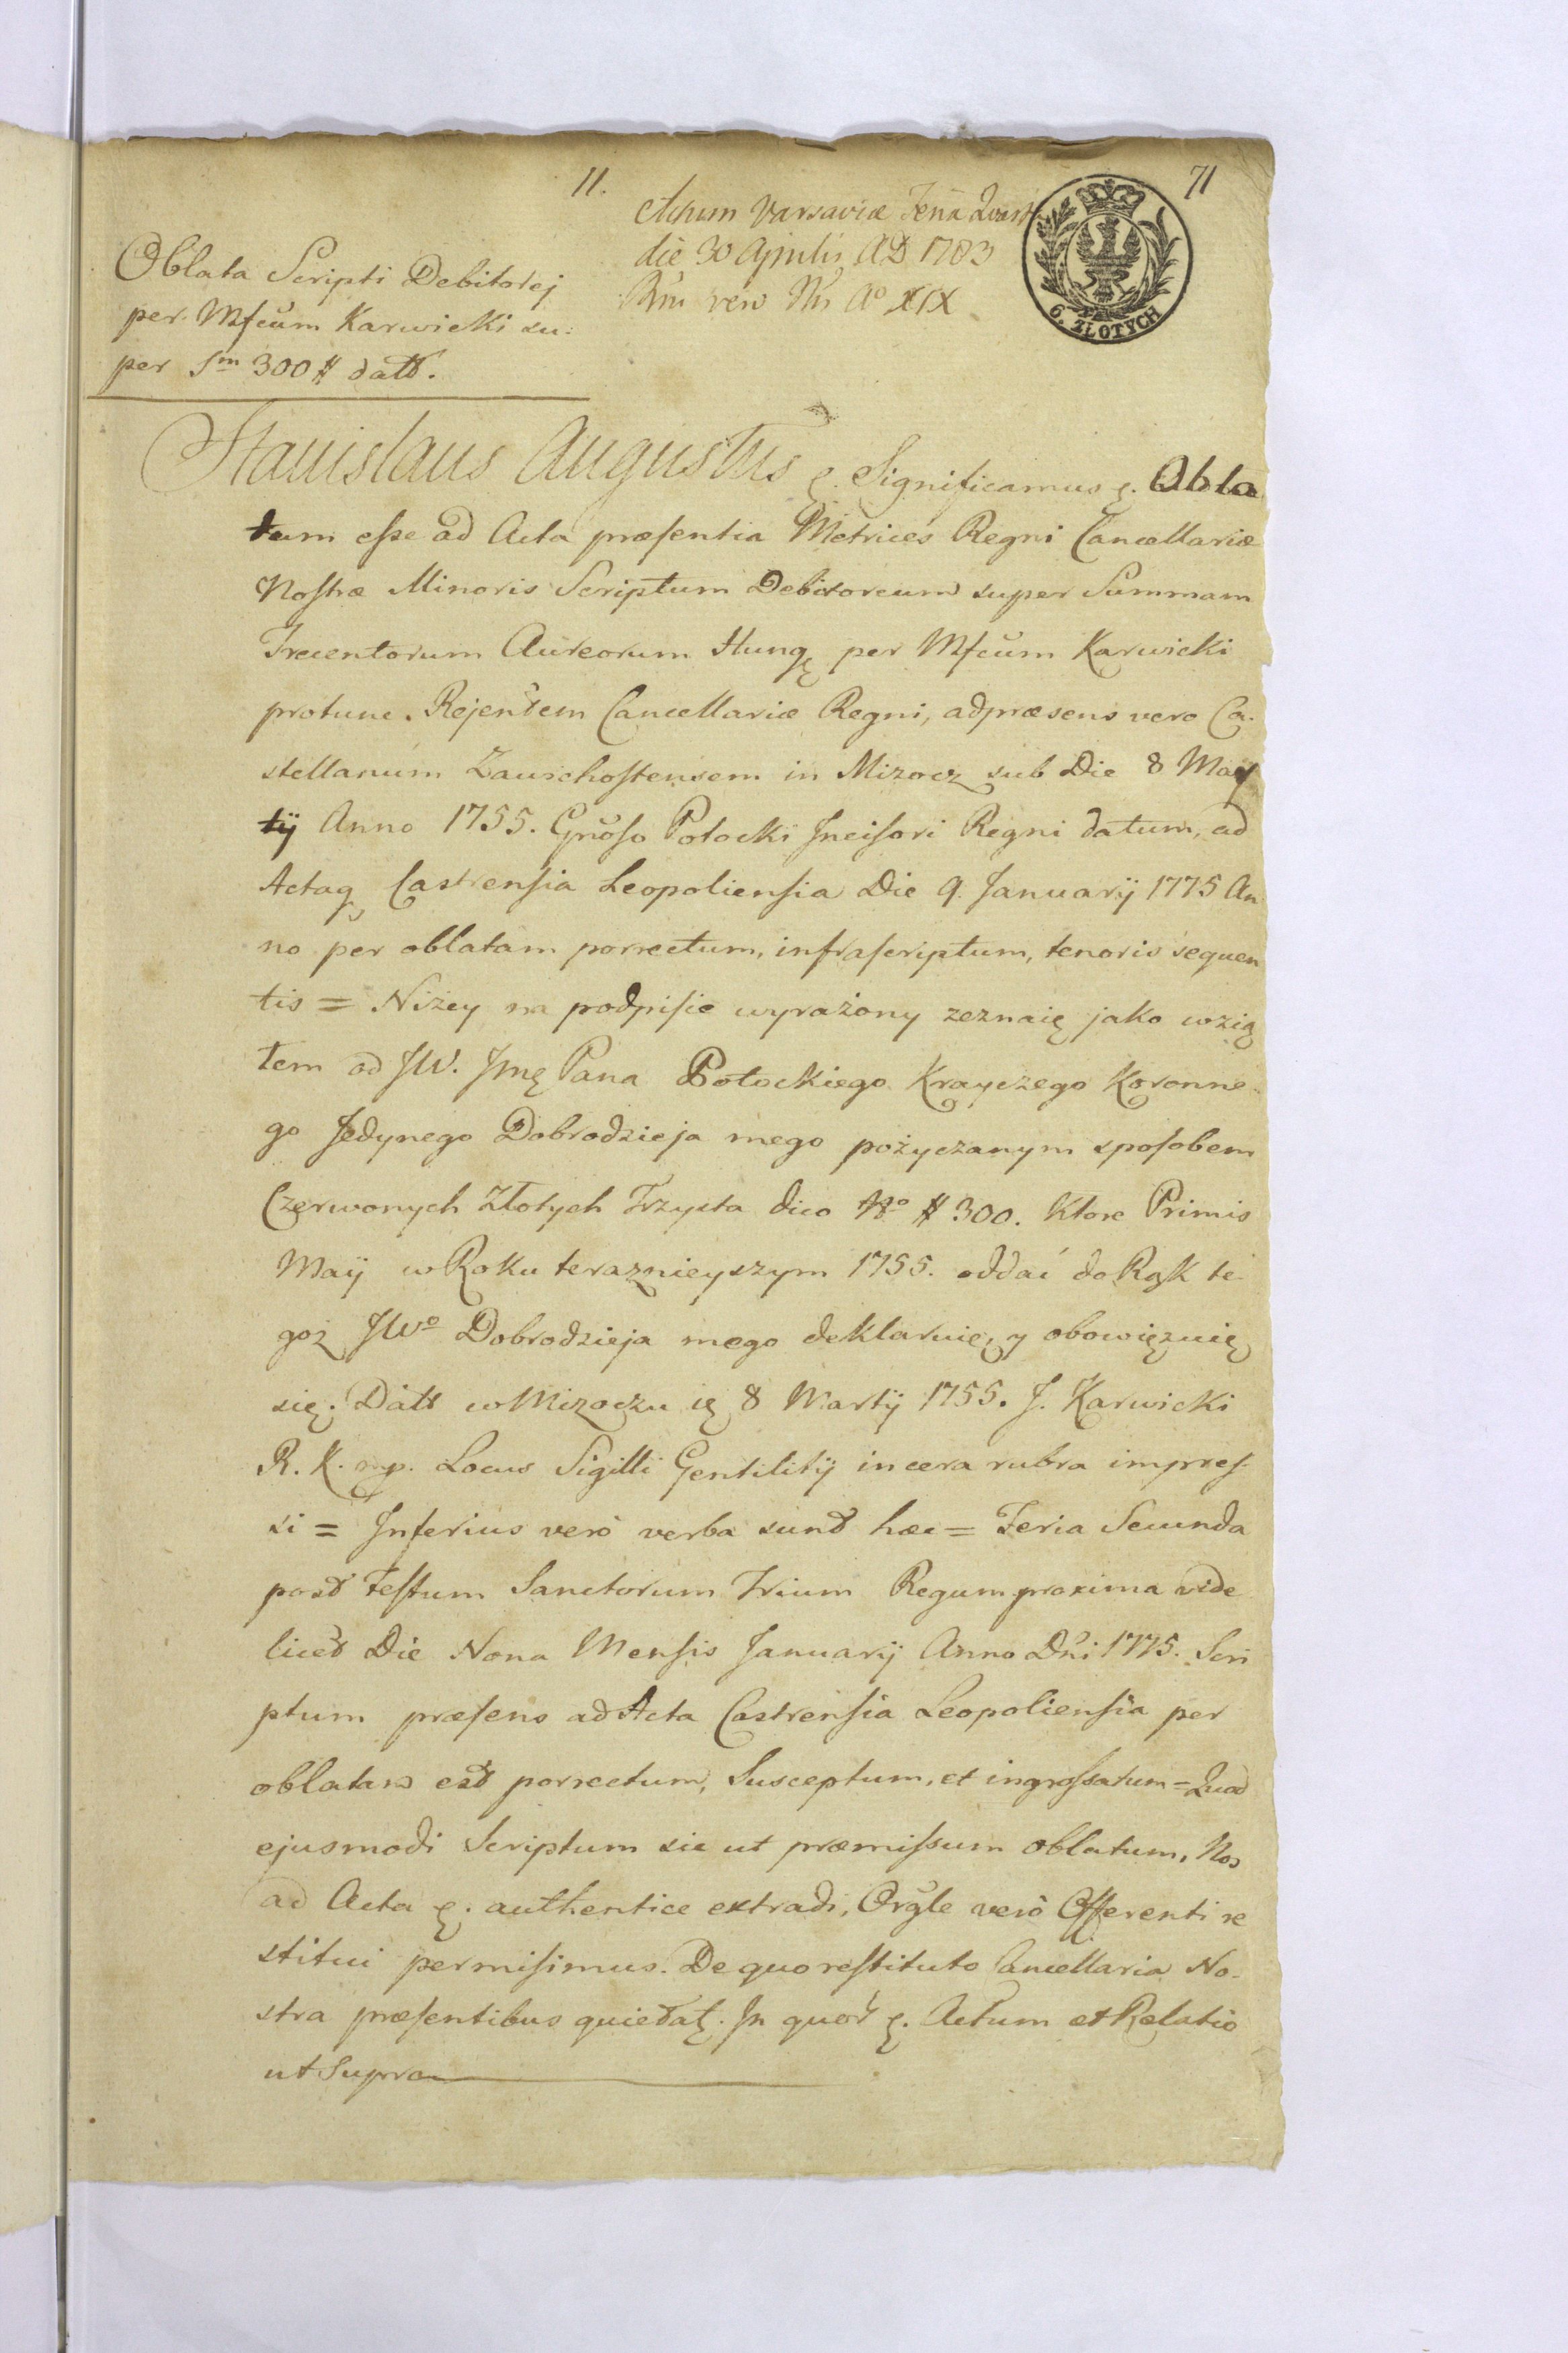 11.
71
Actum Varsaviæ Feria Quarta
die 30 Aprilis AD 1783
Rni vero Nri Aº XIX
6. ZŁOTYCH
Oblata Scripti Debitorej
per Mfcum Karwicki su-
per Sm 300 # datt.
Stanislaus Augustus &. Significamus &. Obla
tum esse ad Acta præsentia Metrices Regni Cancellariæ
Nostræ Minoris Scriptum Debitoreum super Summam
Trecentorum Aureorum Hung. per Mfcum Karwicki
protunc. Rejentem Cancellariæ Regni, adpræsens vero Ca-
stellanum Zawichostensem in Mizocz sub Die 8 Mar
tÿ Anno 1755. Gnoso Potocki Incisori Regni datum, ad
Actaq Castrensia Leopoliensia Die 9. Januarÿ 1775 An
no per oblatam porrectum, infrascriptum, tenoris sequen
tis = Niżey na podpisie wyrażony zeznaię jako wzią
łem od JW. Jmę Pana Potockiego Krayczego Koronne-
go Jedynego Dobrodzieja mego pożyczanym sposobem
Czerwonych Złotych Trzysta dico Nº # 300. Ktore Primis
Maÿ w Roku teraznieyszym 1755. oddać do Rąk te-
goż JWº Dobrodzieja mego deklaruię, y obowięzuię
się. Datt w Mizoczu ię 8 Martÿ 1755. J. Karwicki
R. K. mp. Locus Sigilli Gentilitÿ in cera rubra impres-
si = Inferius verò verba sunt hæc = Feria Secunda
post Festum Sanctorum Trium Regum proxima vide
licet Die Nona Mensis Januarÿ Anno Dni 1775. Scri
ptum præsens ad Acta Castrensia Leopoliensia per
oblatam est porrectum, Susceptum, et ingrossatum = Quod
ejusmodi Scriptum sic ut præmissum oblatum, Nos
ad Acta &. authentice extradi, Orgle verò Offerenti re
stitui permisimus. De quo restituto Cancellaria No-
stra præsentibus quietat. In quor &. Actum et Relatio
ut Supra